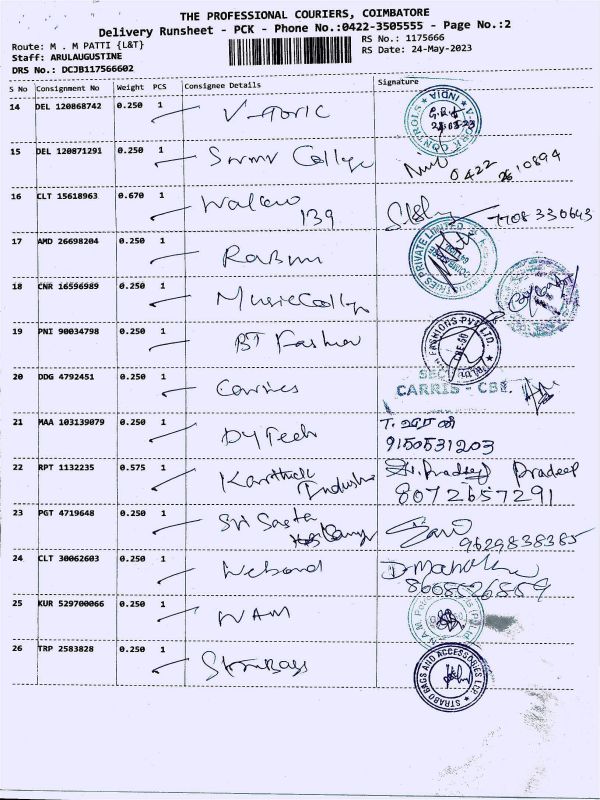 THE PROFESSIONAL COURIERS, COIMBATORE
Delivery Runsheet - PCK - Phone No.:0422-3505555 - Page No.:2
Route: M . M PATTI {L&T}
RS No.: 1175666
Staff: ARULAUGUSTINE
RS Date: 24-May-2023
DRS No.: DCJB117566602
S No Consignment No Weight PCS Consignee Details Signature
14 DEL 120868742 0.250 1 V-Toric
15 DEL 120871291 0.250 1 College 0422
16 CLT 15618963 0.670 1 139 7708 330643
17 AMD 26698204 0.250 1
18 CNR 16596989 0.250 1 Music College
19 PNI 90034798 0.250 1 BT Fashion FASHIONS PVT LTD
20 DDG 4792451 0.250 1 Carries CARRIS - CBE.
21 MAA 103139079 0.250 1 DyTech 9150531203
22 RPT 1132235 0.575 1 Karthick Industries Pradeep Pradeep
8072657291
23 PGT 4719648 0.250 1 Sri Sasta 9629838385
24 CLT 30062603 0.250 1 Webond
25 KUR 529700066 0.250 1 NAM
26 TRP 2583828 0.250 1 StraboBags STRABO BAGS AND ACCESSORIES LLP